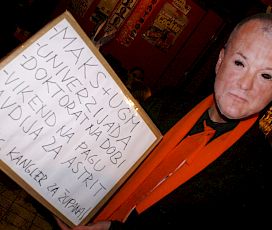 MAKS + UGM
-UNIVERZIJADA
-DOKTORAT NA DOBI
-VIKEND NA PAGU
AVDIJA ZA ASTRIT
KANGLER ZA ŽUPANA!